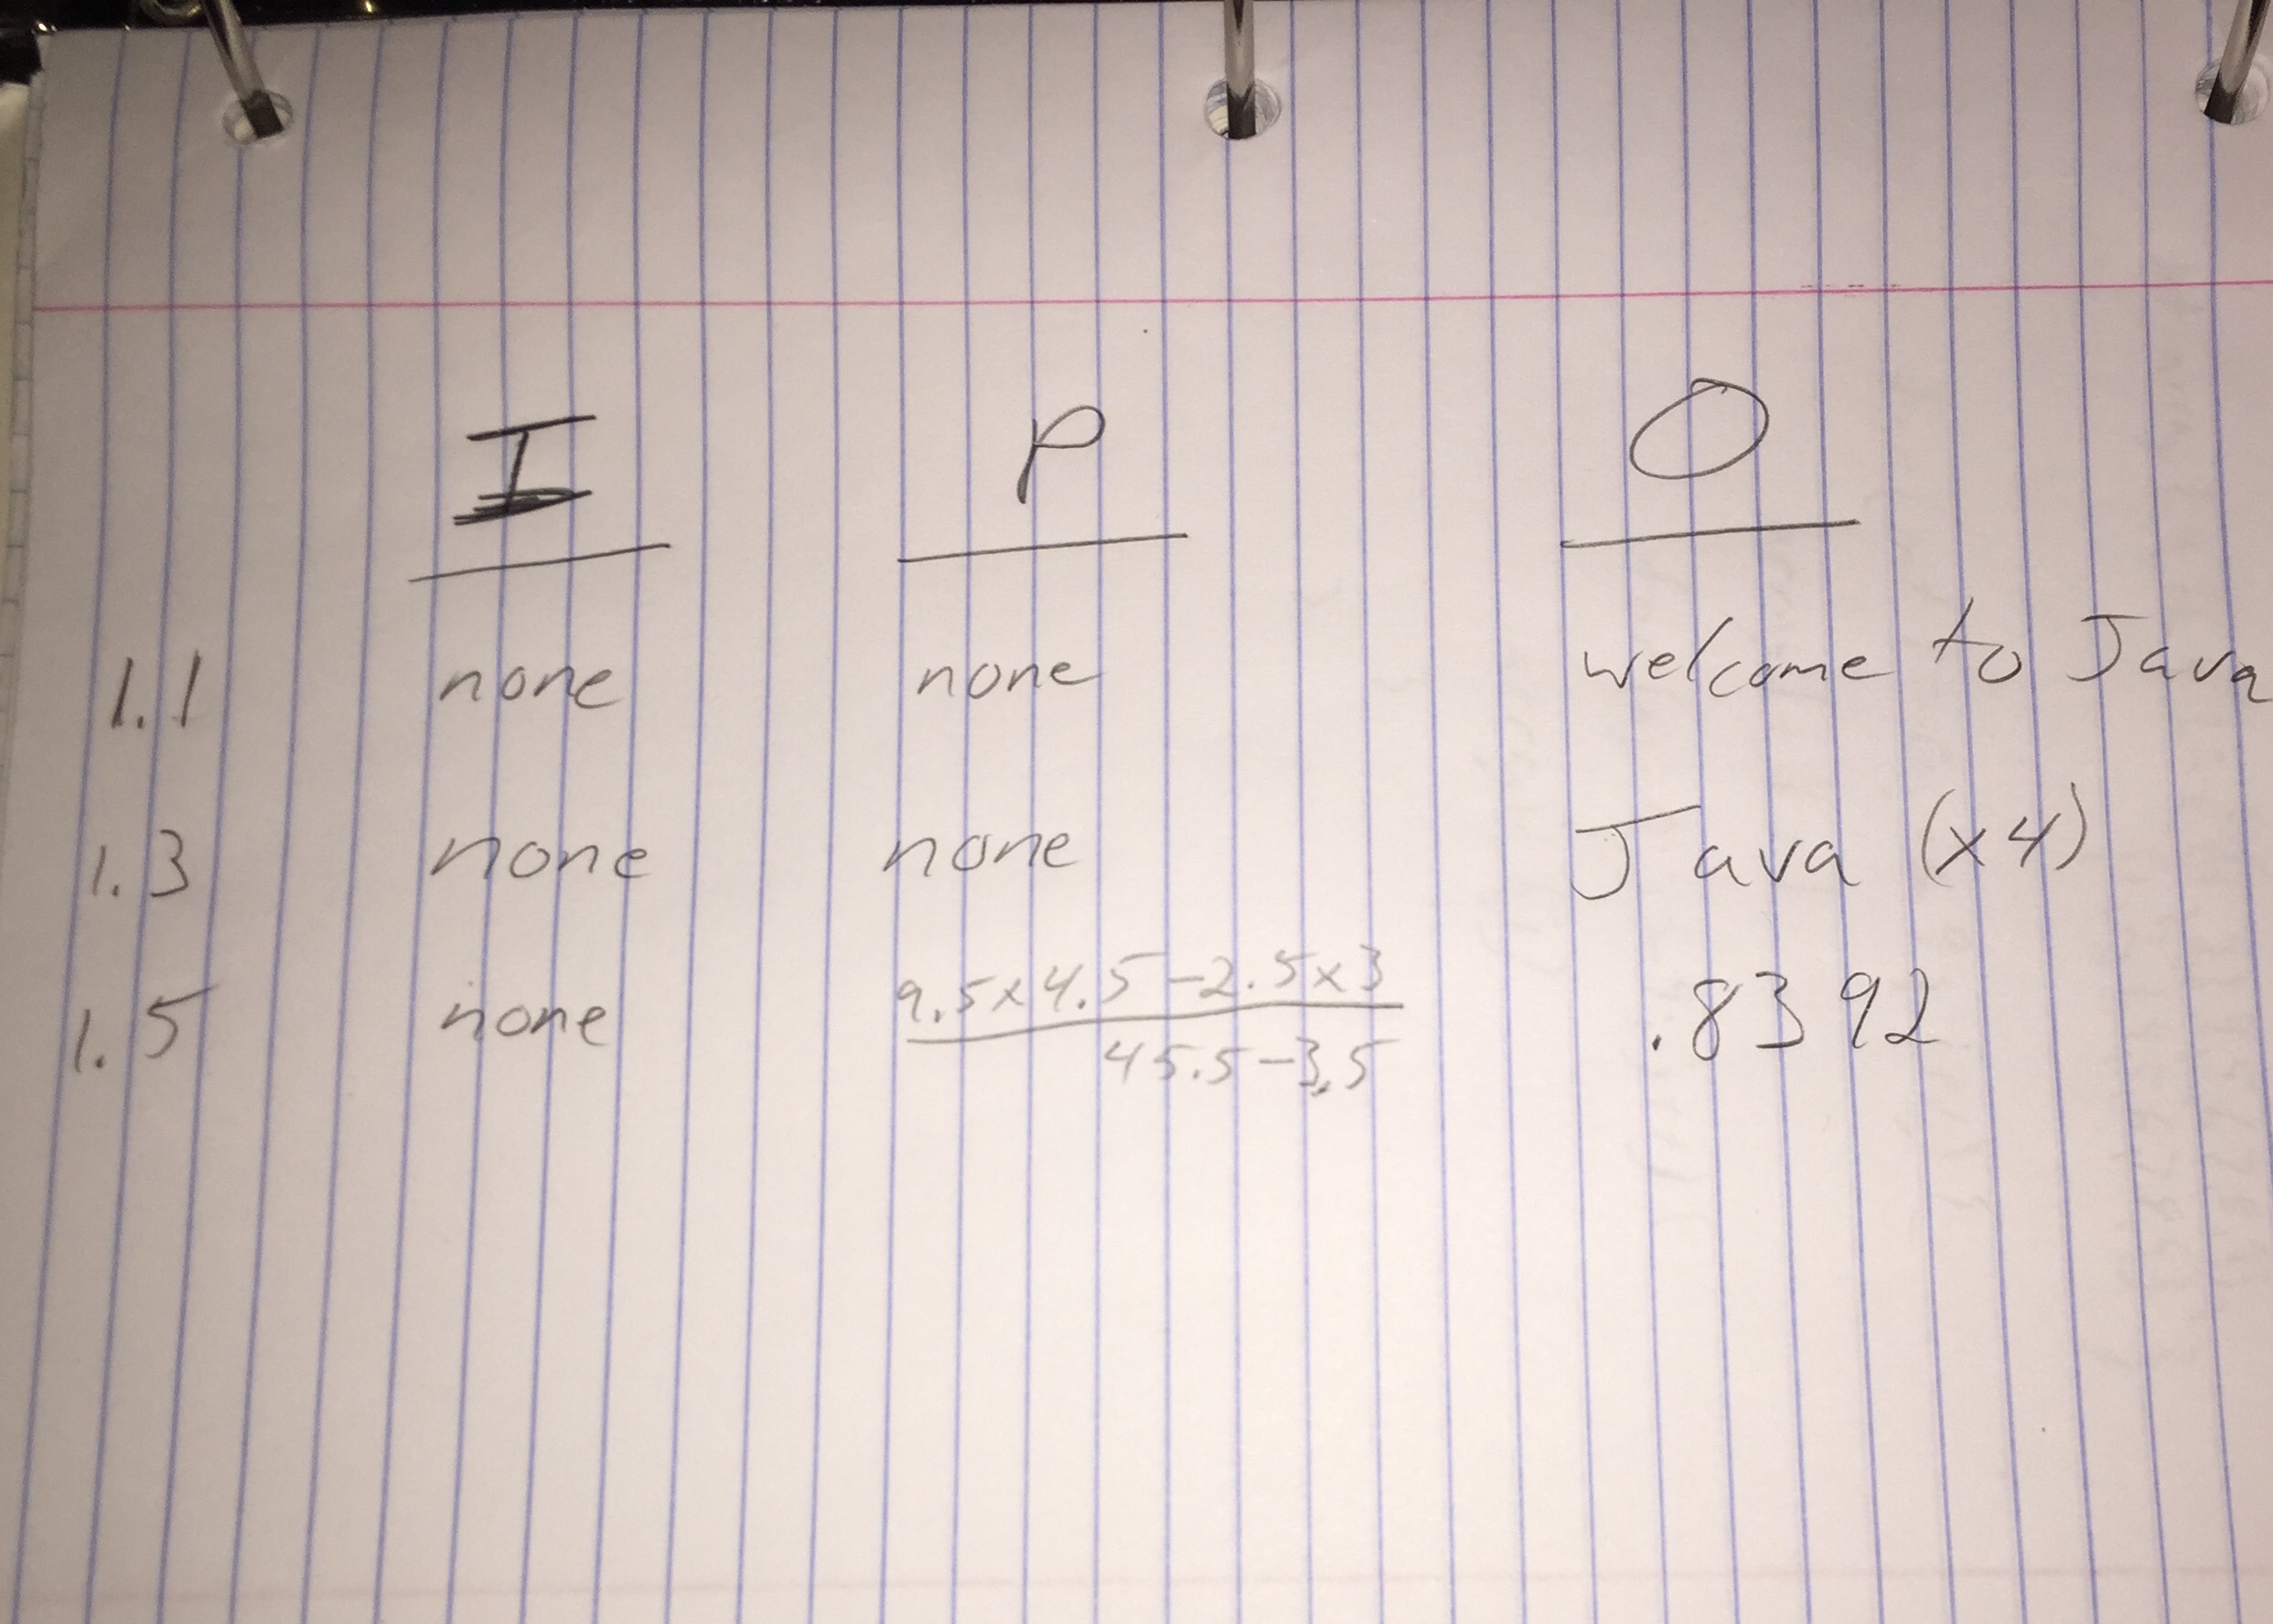 I P O
1.1 none none welcome to Java
1.3 none none Java (x4)
1.5 none 9.5x4.5-2.5x3 .8392
45.5-3.5